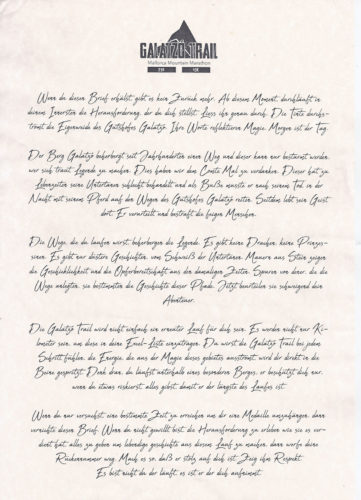 GALATZÓ TRAIL
Mallorca Mountain Marathon
Wenn du diesen Brief erhälst, gibt es kein Zurück mehr. Ab diesem Moment, durchläuft in
deinem Innersten die Herausforderung, der du dich stellst. Lies ihn genau durch. Die Tinte durch-
strömt die Eigenweide des Gutshofes Galatzó. Ihre Worte reflektieren Magie. Morgen ist der Tag.
Der Berg Galatzó beherbergt seit Jahrhunderten einen Weg und dieser kann nur bestürmt werden,
wer sich traut Legende zu machen. Dies haben wir dem Comte Mal zu verdanken. Dieser hat zu
Lebenszeiten seine Untertanen schlecht behandelt und als Buße musste er nach seinem Tod in der
Nacht mit seinem Pferd auf den Wegen des Gutshofes Galatzó reiten. Seitdem lebt sein Geist
dort. Er verurteilt und bestraft die feigen Menschen.
Die Wege, die du laufen wirst, beherbergen die Legende. Es gibt keine Drachen, keine Prinzes-
sinen. Es gibt nur düstere Geschichten, vom Schweiß der Untertanen. Mauern aus Stein zeigen
die Geschicklichkeit und die Opferbereitschaft aus den damaligen Zeiten. Spuren von denen, die die
Wege anlegten, sie bestimmten die Geschichte dieser Pfade. Jetzt beurteilen sie schweigend dein
Abenteuer.
Die Galatzó Trail wird nicht einfach ein erneuter Lauf für dich sein. Es werden nicht nur Ki-
lometer sein, um diese in deine Excel-Liste einzutragen. Du wirst die Galatzó Trail bei jedem
Schritt fühlen, die Energie, die aus der Magie dieses gebietes ausströmt, wird dir direkt in die
Beine gespritzt. Denk dran, du läufst unterhalb eines besonderen Berges, er beschützt dich nur,
wenn du etwas riskierst, alles gibst, damit er der längste des Laufes ist.
Wenn du nur versuchst, eine bestimmte Zeit zu erreichen um dir eine Medaille umzuhängen, dann
vernichte diesen Brief. Wenn du nicht gewillt bist, die Herausforderung zu erleben wie sie es ver-
dient hat, alles zu geben um lebendige geschichte aus diesem Lauf zu machen, dann werfe deine
Rückennummer weg. Mach es so, daß er stolz auf dich ist. Zeig ihm Respekt.
Es bist nicht du der läuft, es ist er der dich aufnimmt.